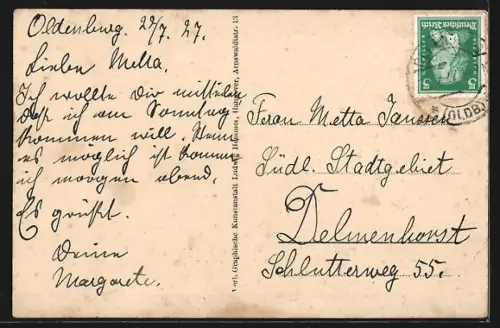 Oldenburg, 29/7. 27.
Lieben Metta.
Ich wollte Dir mitteilen
daß ich am Sonntag
kommen will. Wenn
es möglich ist komme
ich morgen abend.
Es grüßt.
Deine
Margarete.
Verl. Graphische Kunstanstalt Ludwig Hemmer, Hannover, Arnswaldtstr. 13
Deutsches Reich
5
5
(OLDB)
Frau Metta Janssen
Südl. Stadtgebiet
Delmenhorst
Schlutterweg 55.